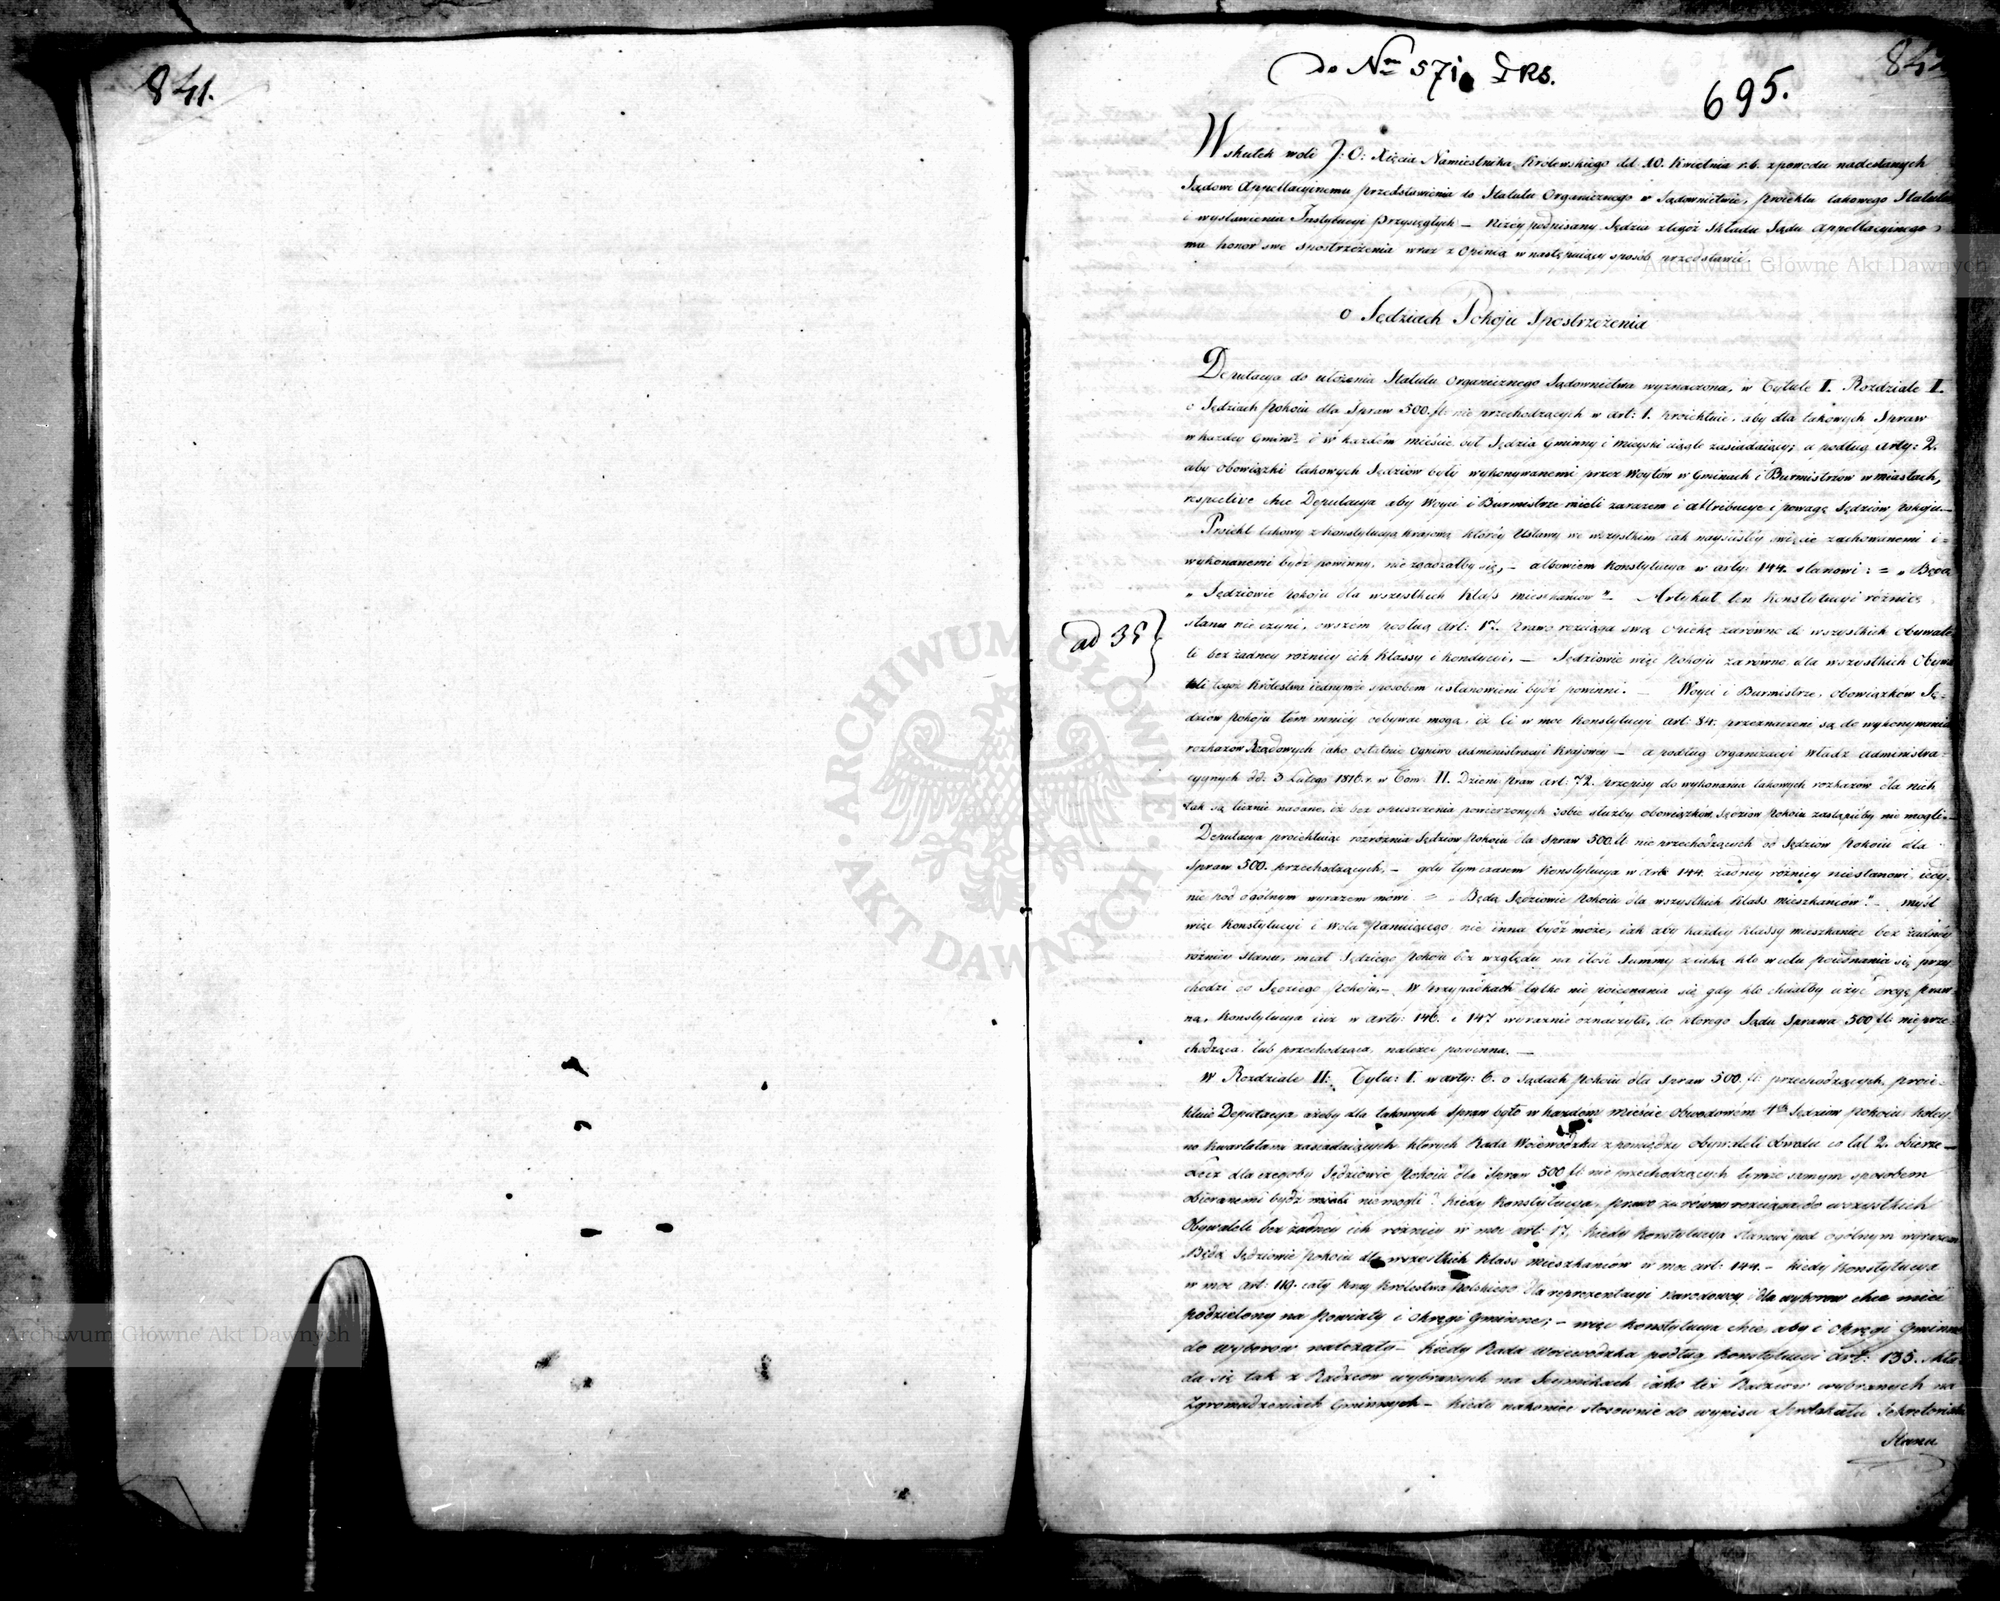 841.
do Nro 571. I RS.
842
695.
Wskutek woli J: O: Xięcia Namiestnika Królewskiego dd. 10. Kwietnia r. b. z powodu nadesłanych
Sądowi Appellacyinemu przedstawienia do Statutu Organicznego w Sądownictwie, proiektu takowego Statutu
i wystawienia Instytucyi Przysięgłych — niżey podpisany Sędzia z tegoż składu Sądu Appellacyinego
ma honor swe spostrzeżenia wraz z Opinią w następuiący sposób przedstawić.
O Sędziach Pokoju Spostrzeżenia
Deputacya do ułożenia Statutu Organicznego Sądownictwa wyznaczona, w Tytule I. Rozdziale I.
o Sędziach Pokoiu dla Spraw 500. fl: nie przechodzących w art: 1. proiektuie, aby dla takowych Spraw
w każdey Gminie i w każdém mieście był Sędzia Gminny i mieyski ciągle zasiadaiący; a podług arty: 2.
aby obowiązki takowych Sędziów były wykonywanemi przez Woytów w Gminach i Burmistrzów w miastach,
respective chce Deputacya aby Woyci i Burmistrze mieli zarazem i attribucye i powagę Sędziów pokoju —
Proiekt takowy z Konstytucyą Kraiową, którey Ustawy we wszystkim iak nayściśley święcie zachowanemi i =
wykonanemi bydź powinny, nie zgadzałby się, — albowiem Konstytucya w arty: 144. stanowi: = „ Będą
„ Sędziowie pokoiu dla wszystkich klass mieszkańców" — Artykuł ten Konstytucyi różnicę
ad 35
stanu nie czyni, owszem podług art: 17. prawo rozciąga swą opiekę zarówno do wszystkich obywate-
li bez żadney różnicy ich klassy i kondycyi. — Sędziowie więc pokoiu zarówno dla wszystkich Obywa
teli tegoż Królestwa iednymże sposobem ustanowieni bydź powinni. — Woyci i Burmistrze, obowiązków Sę-
dziów pokoju tém mniéy odbywać mogą, iż ci w moc Konstytucyi art: 84. przeznaczeni są do wykonywania
rozkazów Rządowych jako ostatnie ogniwo administracyi kraiowey — a podług organizacyi władz administra-
cyynych dd. 3 Lutego 1816. r. w Tom. II. Dzien: praw art. 72. przepisy do wykonania takowych rozkazów dla nich
tak są licznie nadane, iż bez opuszczenia powierzonych sobie służby obowiązków, Sędziów Pokoiu zastąpićby nie mogli —
Deputacya proiektuiąc rozróżnia Sędziów Pokoiu dla Spraw 500. fl. nie przechodzących od Sędziów Pokoiu dla
Spraw 500. przechodzących, — gdy tym czasem Konstytucya w Arty: 144. żadney różnicy niestanowi, iedy-
nie pod ogólnym wyrazem mówi = „ Będą Sędziowie Pokoiu dla wszystkich klass mieszkańców". — myśl
więc Konstytucyi i Wola Panuiącego nie inna bydź może, iak aby każdey klassy mieszkaniec bez żadney
różnicy stanu, miał Sędziego pokoiu bez względu na ilość Summy z iaką kto w celu poiednania się przy
chodzi do Sędziego Pokoju, — w przypadkach tylko nie poiednania się gdy kto chciałby użyć drogę praw-
ną, Konstytucya iuż w arty: 146. i 147 wyraźnie oznaczyła, do którego Sądu Sprawa 500 fl: nie prze-
chodząca lub przechodząca, należeć powinna. —
W Rozdziale II: Tytu: I. w arty: 6. o Sądach Pokoiu dla Spraw 500. fl: przechodzących, proie-
ktuie Deputacya ażeby dla takowych spraw było w każdem mieście obwodowém 4ch Sędziów pokoiu koley-
no kwartałami zasiadaiących których Rada Woiewódzka z pomiędzy obywateli obwodu co lat 2. obierze —
Lecz dla czegoby Sędziowie Pokoiu dla Spraw 500 fl: nie przechodzących tymże samym sposobem
obieranemi bydź nie mogli? kiedy Konstytucya, prawo zarówno rozciąga do wszystkich
Obywateli bez żadney ich różnicy w moc art: 17. kiedy Konstytucya stanowi pod ogólnym wyrazem
„Będą Sędziowie Pokoiu dla wszystkich klass mieszkańców w moc art: 144. — kiedy Konstytucya
w moc art: 119. cały Kray Królestwa Polskiego dla reprezentacyi Narodowey i dla wyborów chce mieć
podzielony na powiaty i okręgi gminne; — więc Konstytucya chce, aby i okręgi Gminne
do wyborów należały — kiedy Rada Woiewódzka podług Konstytucyi art: 135. skła-
da się tak z Radzców wybranych na Seymikach iako też Radzców wybranych na
Zgromadzeniach Gminnych — kiedy nakoniec stosownie do wypisu z Protokułu Sekretariatu
Stanu
ARCHIWUM GŁÓWNE AKT DAWNYCH
Archiwum Główne Akt Dawnych
Archiwum Główne Akt Dawnych